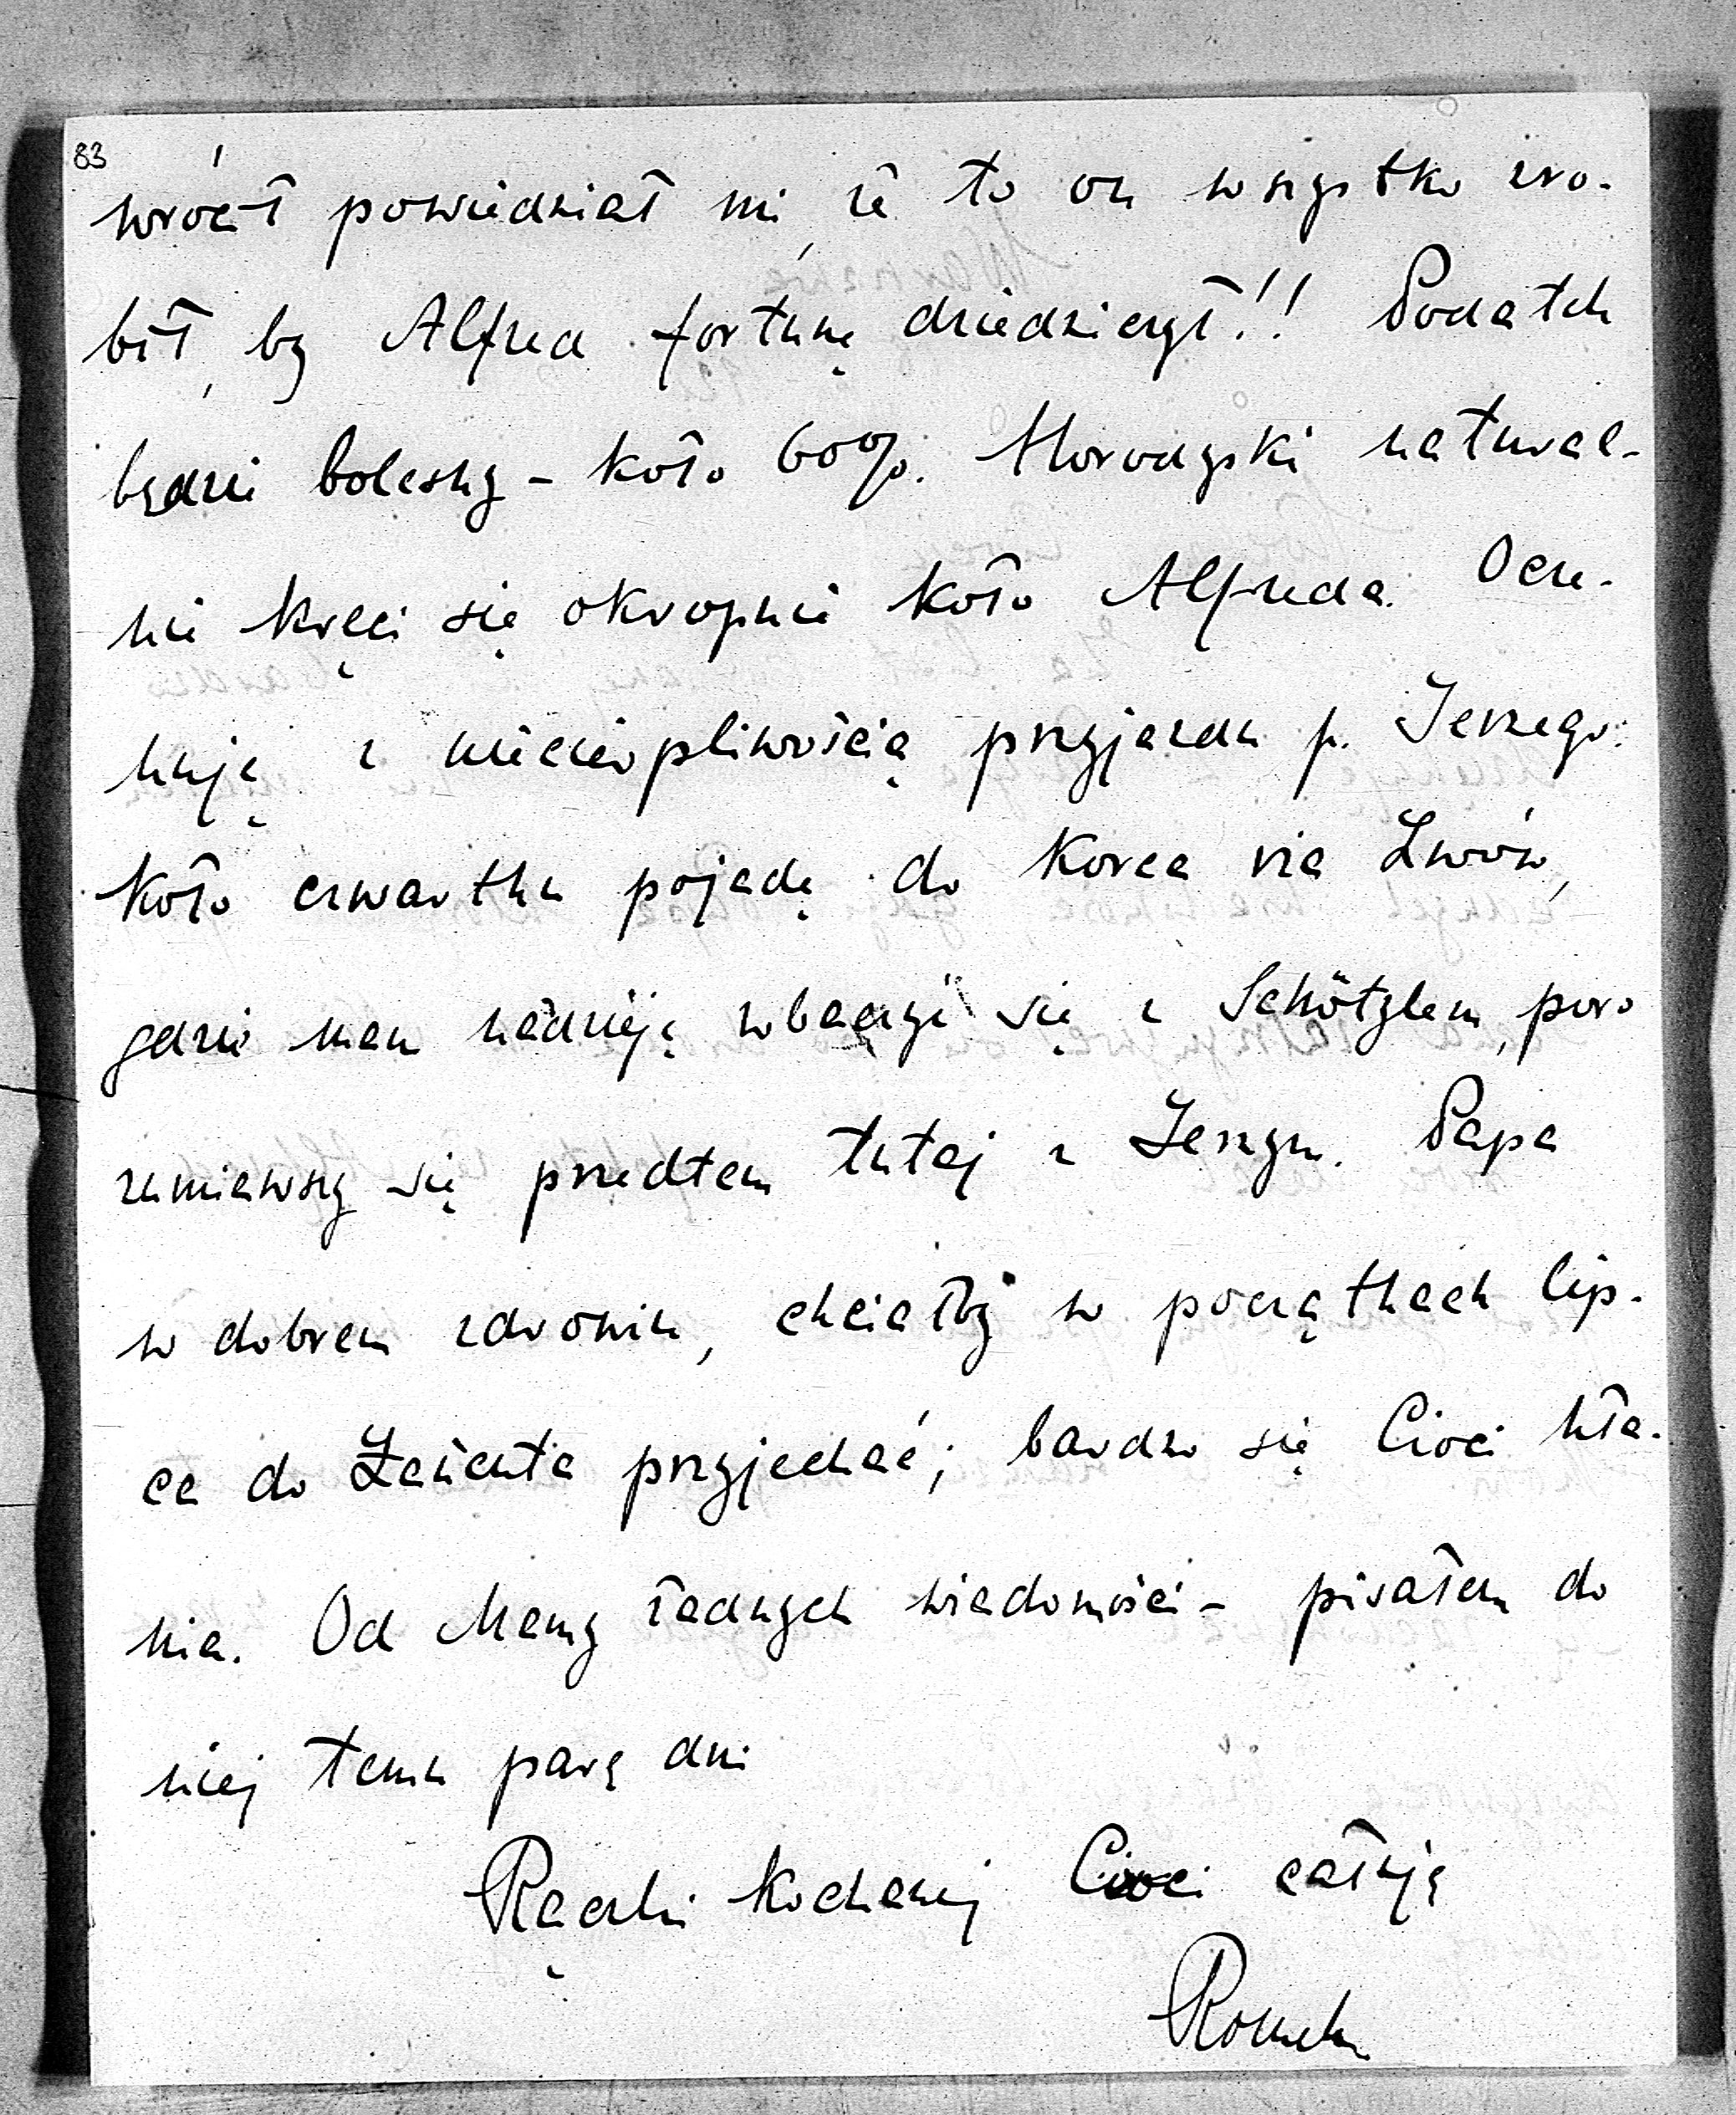 83
wrócił powiedział mi, że to on wszystko zro-
bił, by Alfred fortunę dziedziczył!! Podatek
będzie bolesny – koło 60%. Morozyski natural-
nie kręci się okropnie koło Alfreda. Ocze-
kuję z niecierpliwością przyjazdu p. Jerzego.
Koło czwartku pojadę do Korca via Lwów,
gdzie mam nadzieję zobaczyć się z Schötzlem, poro
zumiawszy się przedtem tutaj z Jerzym. Papa
w dobrem zdrowiu, chciałby w początkach lip-
ca do Łańcuta przyjechać; bardzo się Cioci kła-
nia. Od Mamy żadnych wiadomości – pisałem do
niej temu parę dni
Rączki Kochanej Cioci całuję
Romek